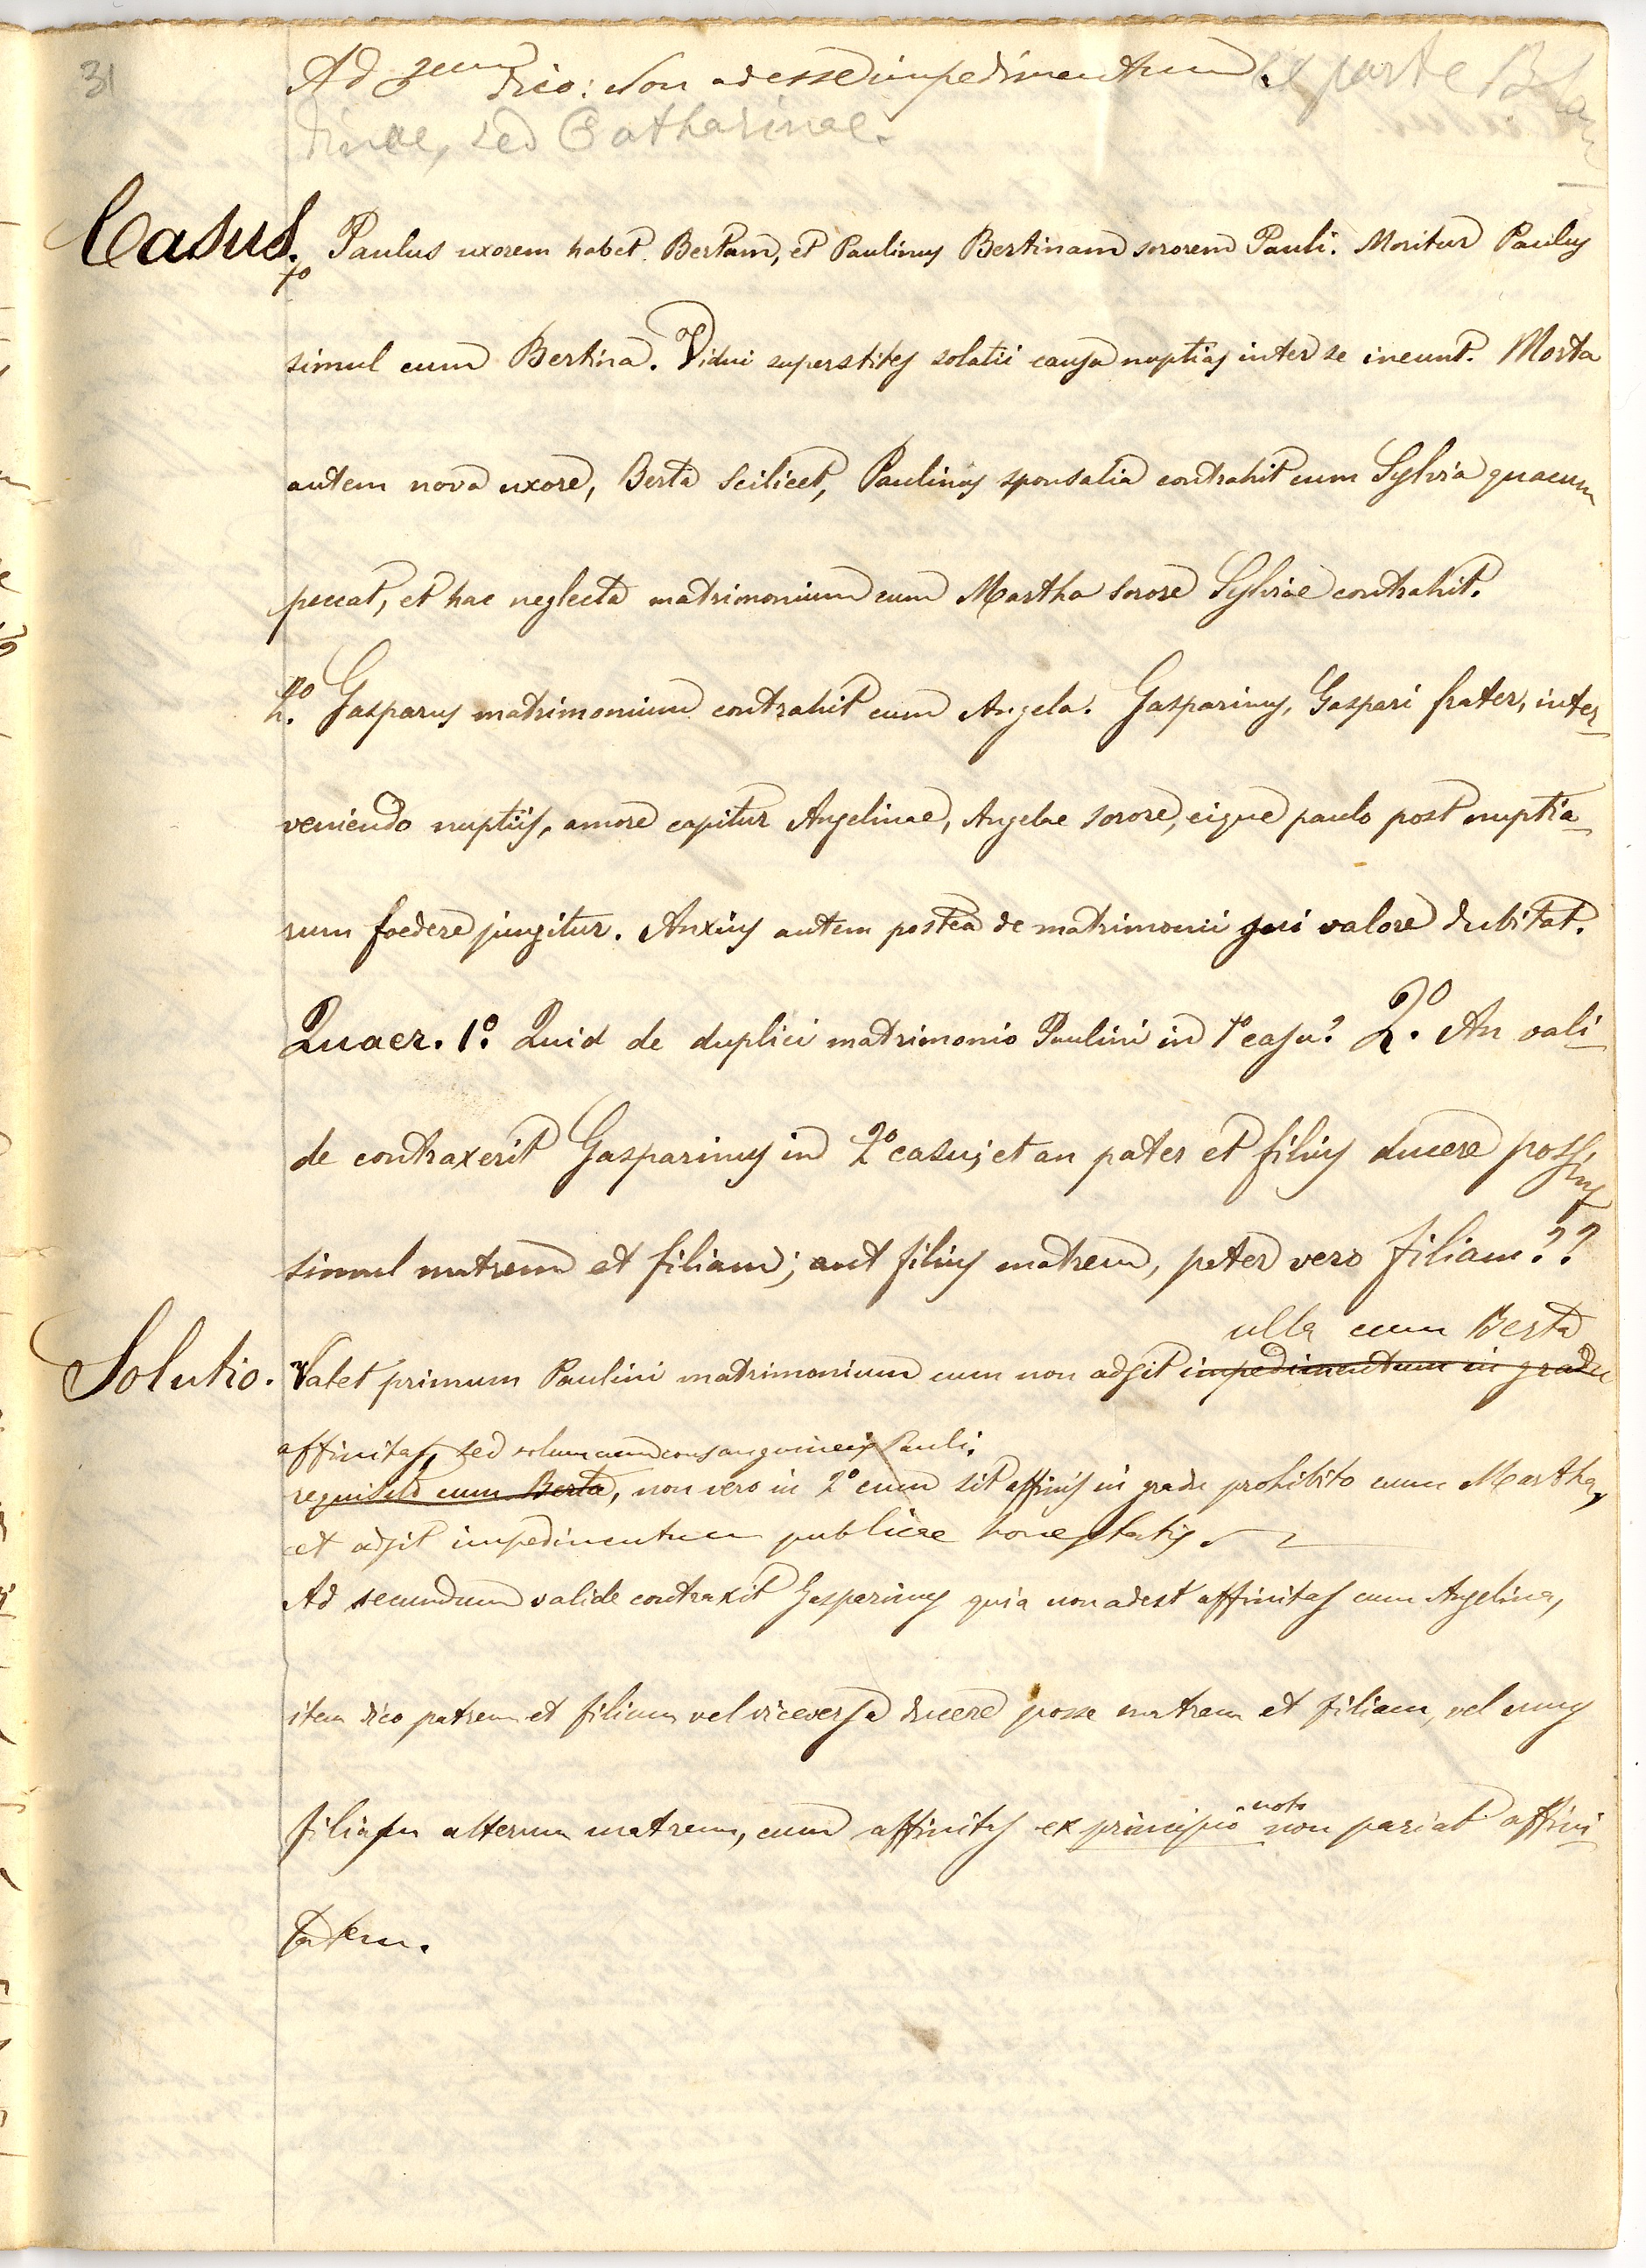 31
Ad 3um dico: Non adesse impedimentum ex parte Blan
dinae, sed Catharinae.
Casus. 1o Paulus uxorem habet Bertam, et Paulinus Bertinam sororem Pauli. Moritur Paulus
simul cum Bertina. Vidui superstites solatii causa nuptias inter se ineunt. Morta
autem nova uxore, Berta scilicet, Paulinus sponsalia contrahit cum Sylvia quacum
peccat, et hac neglecta matrimonium cum Martha sorore Sylviae contrahit.
2o. Gasparus matrimonium contrahit cum Angela. Gasparinus, Gaspari frater, inter
veniendo nuptiis, amore capitur Angelinae, Angelae sorore, eique paulo post nuptia
rum foedere jungitur. Anxius autem postea de matrimonii sui valore dubitat.
Quaer. 1o. Quid de duplici matrimonio Paulini in 1o casu? 2o. An vali
de contraxerit Gasparinus in 2o casu; et an pater et filius ducere possint
simul matrem et filiam; aut filius matrem, pater vero filiam??
ulla cum Berta
Solutio. Valet primum Paulini matrimonium cum non adsit impedimentum in gradu
affinitas, sed solum cum consanguineis Pauli.
requisito cum Berta, non vero in 2o cum sit affinis in gradu prohibito cum Martha,
et adsit impedimentum publicae honestatis.
Ad secundum valide contraxit Gasparinus quia non adest affinitas cum Angelina,
item dico patrem et filium vel viceversa ducere posse matrem et filiam, vel unus
filiam alterum matrem, cum affinitas ex principio noto non pariat affini
tatem.